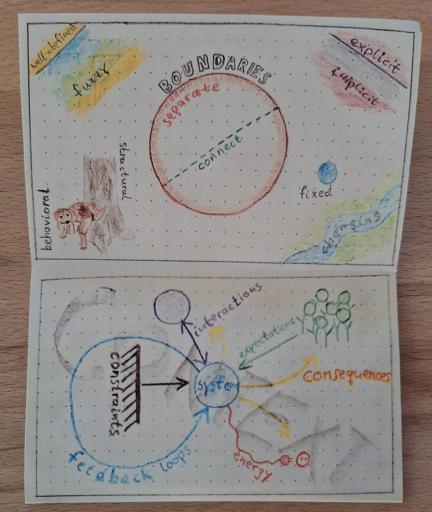 well-defined
fuzzy
BOUNDARIES
separate
connect
explicit
implicit
behavioral
structural
fixed
changing
interactions
expectations
constraints
system
consequences
feedback loops
energy